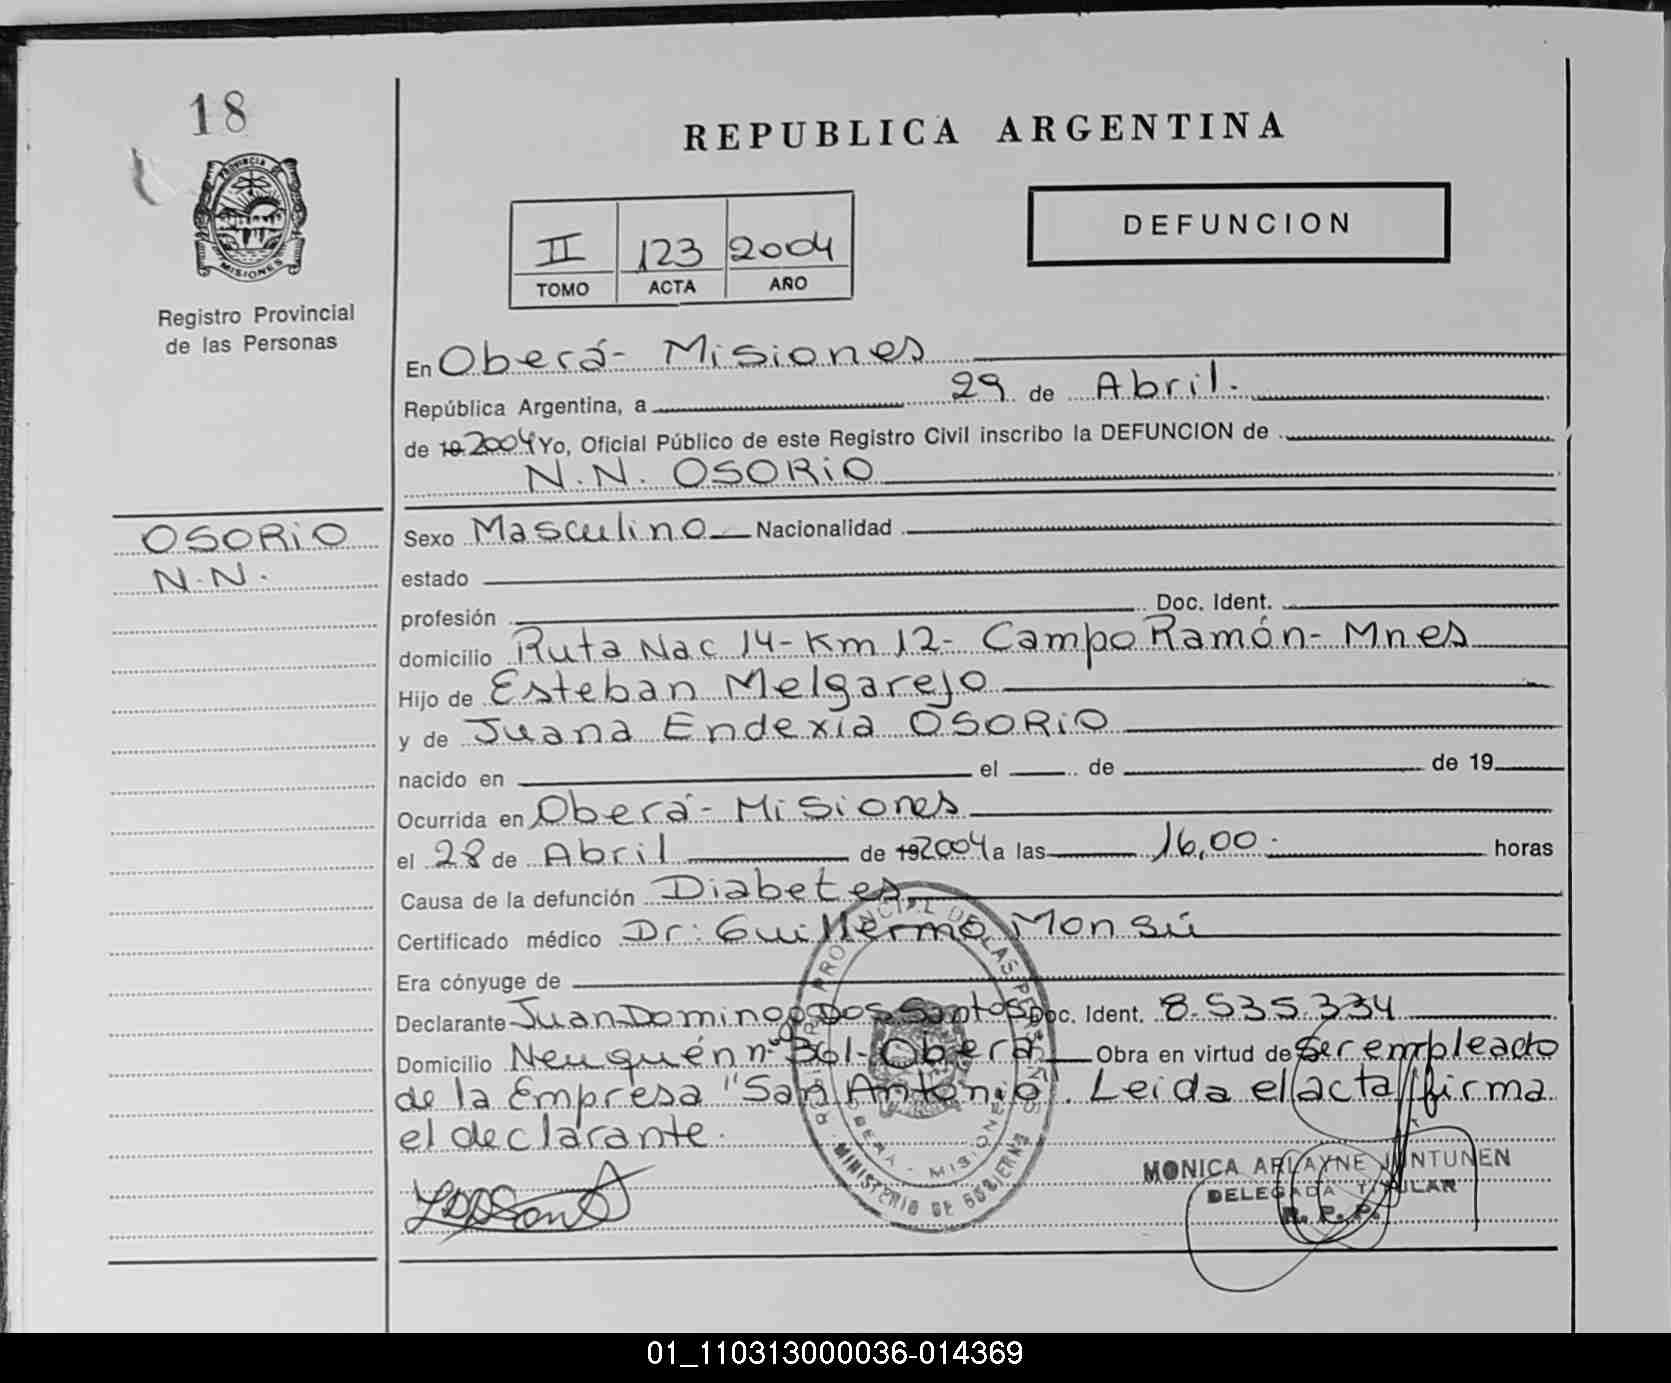 18
PROVINCIA DE
MISIONES
Registro Provincial
de las Personas
REPUBLICA ARGENTINA
II 123 2004
TOMO ACTA AÑO
DEFUNCION
En Oberá- Misiones
República Argentina, a 29 de Abril.
de 19 2004 Yo, Oficial Público de este Registro Civil inscribo la DEFUNCION de
N.N. OSORIO
OSORIO
N.N.
Sexo Masculino Nacionalidad
estado
profesión Doc. Ident.
domicilio Ruta Nac 14-Km 12- Campo Ramón- Mnes
Hijo de Esteban Melgarejo
y de Juana Endexia OSORIO
nacido en el de de 19
Ocurrida en Oberá- Misiones
el 28 de Abril de 19 2004 a las 16,00. horas
Causa de la defunción Diabetes
Certificado médico Dr: Guillermo Monsú
Era cónyuge de
Declarante Juan Domingo Dos Santos Doc. Ident. 8.535.334
Domicilio Neuquén nº 361- Oberá Obra en virtud de Ser empleado
de la Empresa "San Antonio". Leida el acta firma
el declarante.
REGISTRO PROVINCIAL DE LAS PERSONAS
OBERA - MISIONES
MINISTERIO DE GOBIERNO
MONICA ARLAYNE JUNTUNEN
DELEGADA TITULAR
R. P. P.
01_110313000036-014369